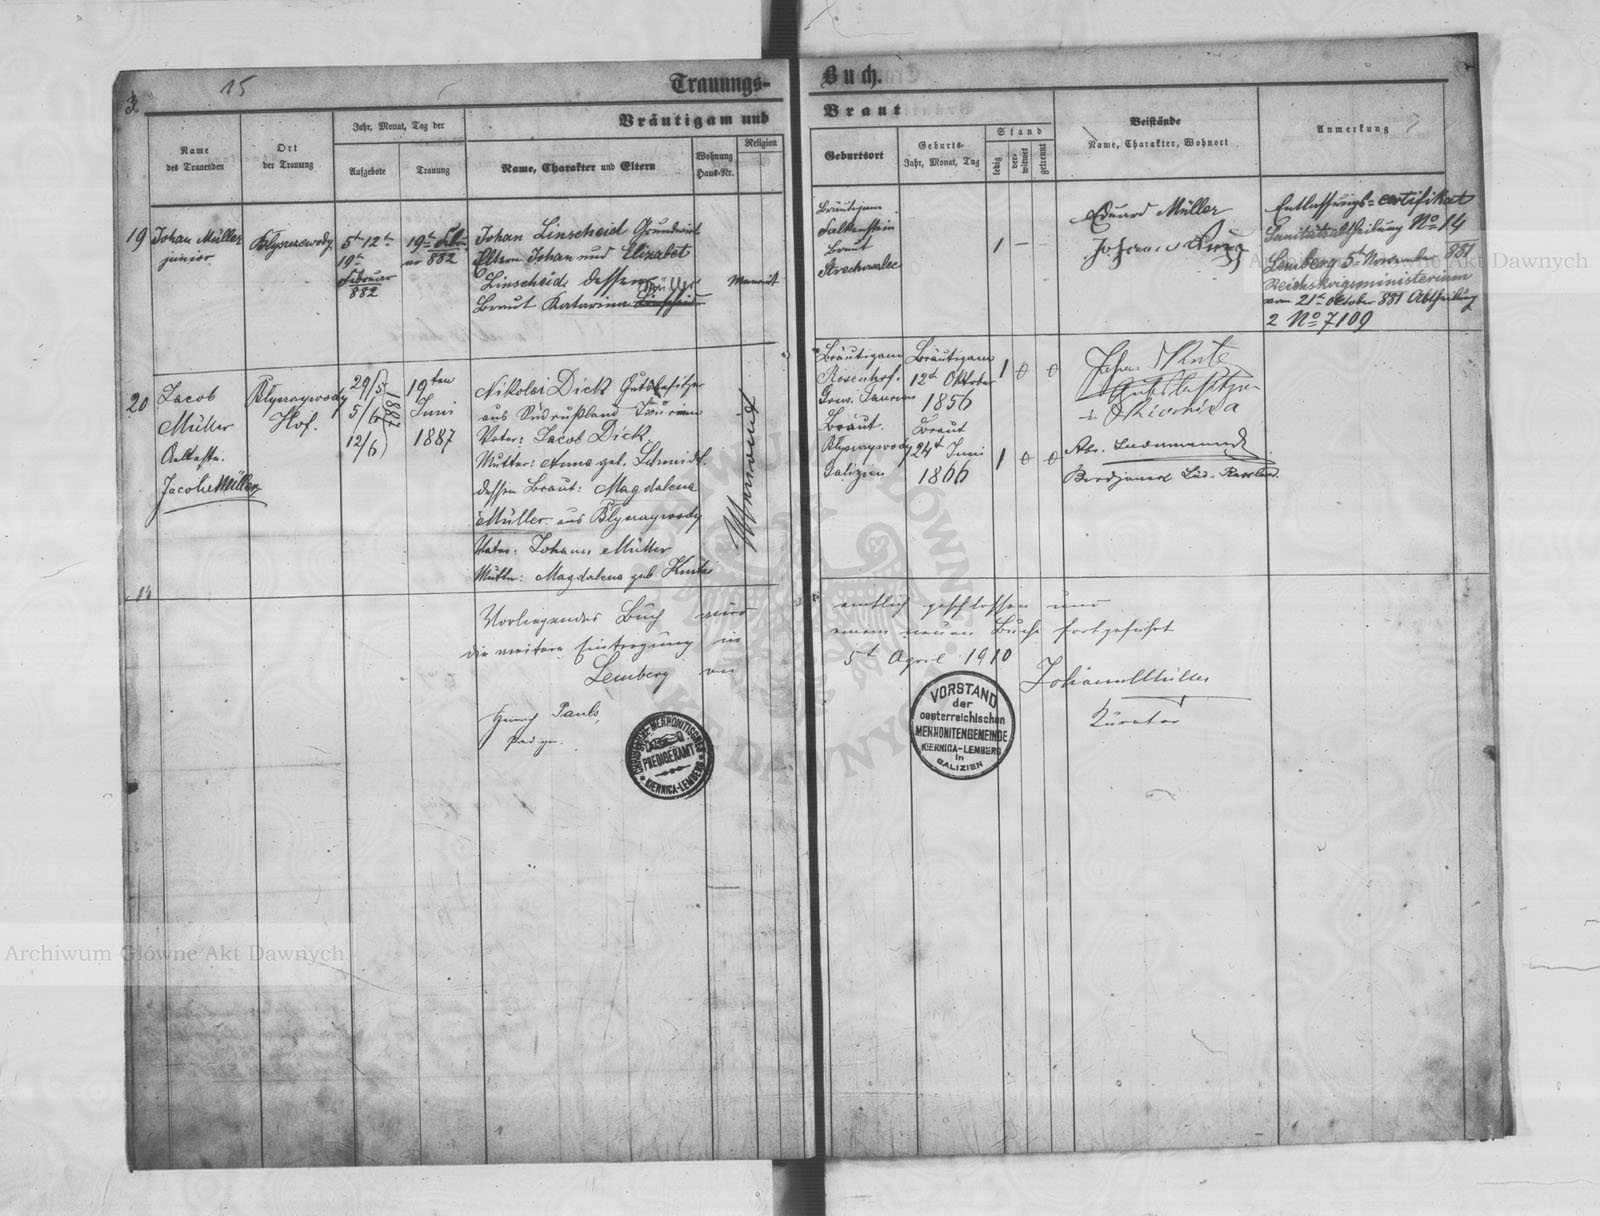 15
Trauungs-
Buch.
Bräutigam und
Braut
Name
des Trauenden
Ort
der Trauung
Jahr, Monat, Tag der
Aufgebote
Trauung
Name, Charakter und Eltern
Wohnung
Haus-Nr.
Religion
Geburtsort
Geburts-
Jahr, Monat, Tag
Stand
ledig
ver-
witwet
getrennt
Beistände
Name, Charakter, Wohnort
Anmerkung
19
Johan Müller
junior
5t 12t
19t
Februer
882
19t Febru
er 882
Johan Linscheid Grundwirt
Eltern Johan und Elisabet
Linscheid dessen Müller
Braut Katarina Linscheid
Menonit
Bräutigam
Falkenstein
Braut
Strechowalec
1
Eduard Müller
Entlassungs-certifikat
Sanitätsabtheilung No 14
Lemberg 5t November 881
Reichskrigsministerium
vom 21t Oktober 881 Abtheilung
2 No 7109
20
Jacob
Müller
Aelteste.
Jacob Müller
Hof.
29/5
5/6
12/6
1887
19ten
Juni
1887
Nikolai Dick Gutsbesitzer
aus Südrußland Taurien
Vater: Jacob Dick
Mutter: Anna geb. Schmidt.
dessen Braut: Magdalena
Müller aus
Vater: Johann Müller
Mutter: Magdalena geb. Kintzi
Menonit
Bräutigam
Rosenhof.
Gouv. Taurien
Braut.
Galizien
Bräutigam
12t Oktober
1856
Braut
24t Juni
1866
1 0 0
1 0 0
Berdjansk Süd-Russland.
Vorliegendes Buch wird
amtlich geschlossen und
die weitere Eintragung in
einem neuen Buche fortgeführt
Lemberg am
5t April 1910
Heinrich Pauls,
Prediger.
Johann Müller
Kurator
PREDIGERAMT
KIERNICA-LEMBERG
VORSTAND
der
oesterreichischen
MENNONITENGEMEINDE
KIERNICA-LEMBERG
in
GALIZIEN
Archiwum Główne Akt Dawnych
Archiwum Główne Akt Dawnych